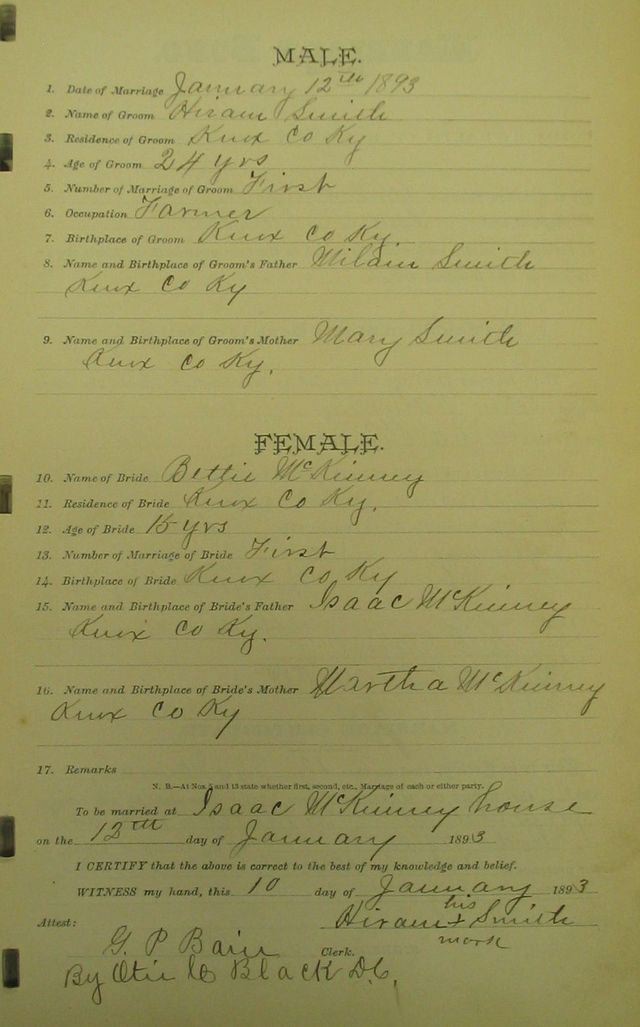 MALE.
1. Date of Marriage January 12th 1893
2. Name of Groom Hiram Smith
3. Residence of Groom Knox Co Ky
4. Age of Groom 24 yrs
5. Number of Marriage of Groom First
6. Occupation Farmer
7. Birthplace of Groom Knox Co Ky
8. Name and Birthplace of Groom's Father Smith
Knox Co Ky
9. Name and Birthplace of Groom's Mother Mary Smith
Knox Co Ky.
FEMALE.
10. Name of Bride Bettie McKinney
11. Residence of Bride Knox Co Ky.
12. Age of Bride 15 yrs
13. Number of Marriage of Bride First
14. Birthplace of Bride Knox Co Ky
15. Name and Birthplace of Bride's Father Isaac McKinney
Knox Co Ky.
16. Name and Birthplace of Bride's Mother Martha McKinney
Knox Co Ky
17. Remarks
N. B.—At Nos. 5 and 13 state whether first, second, etc., Marriage of each or either party.
To be married at Isaac McKinney house
on the 12th day of January 1893
I CERTIFY that the above is correct to the best of my knowledge and belief.
WITNESS my hand, this 10 day of January 1893
his
Attest: Hiram + Smith
mark
G. P. Bain Clerk.
By Black D.C.